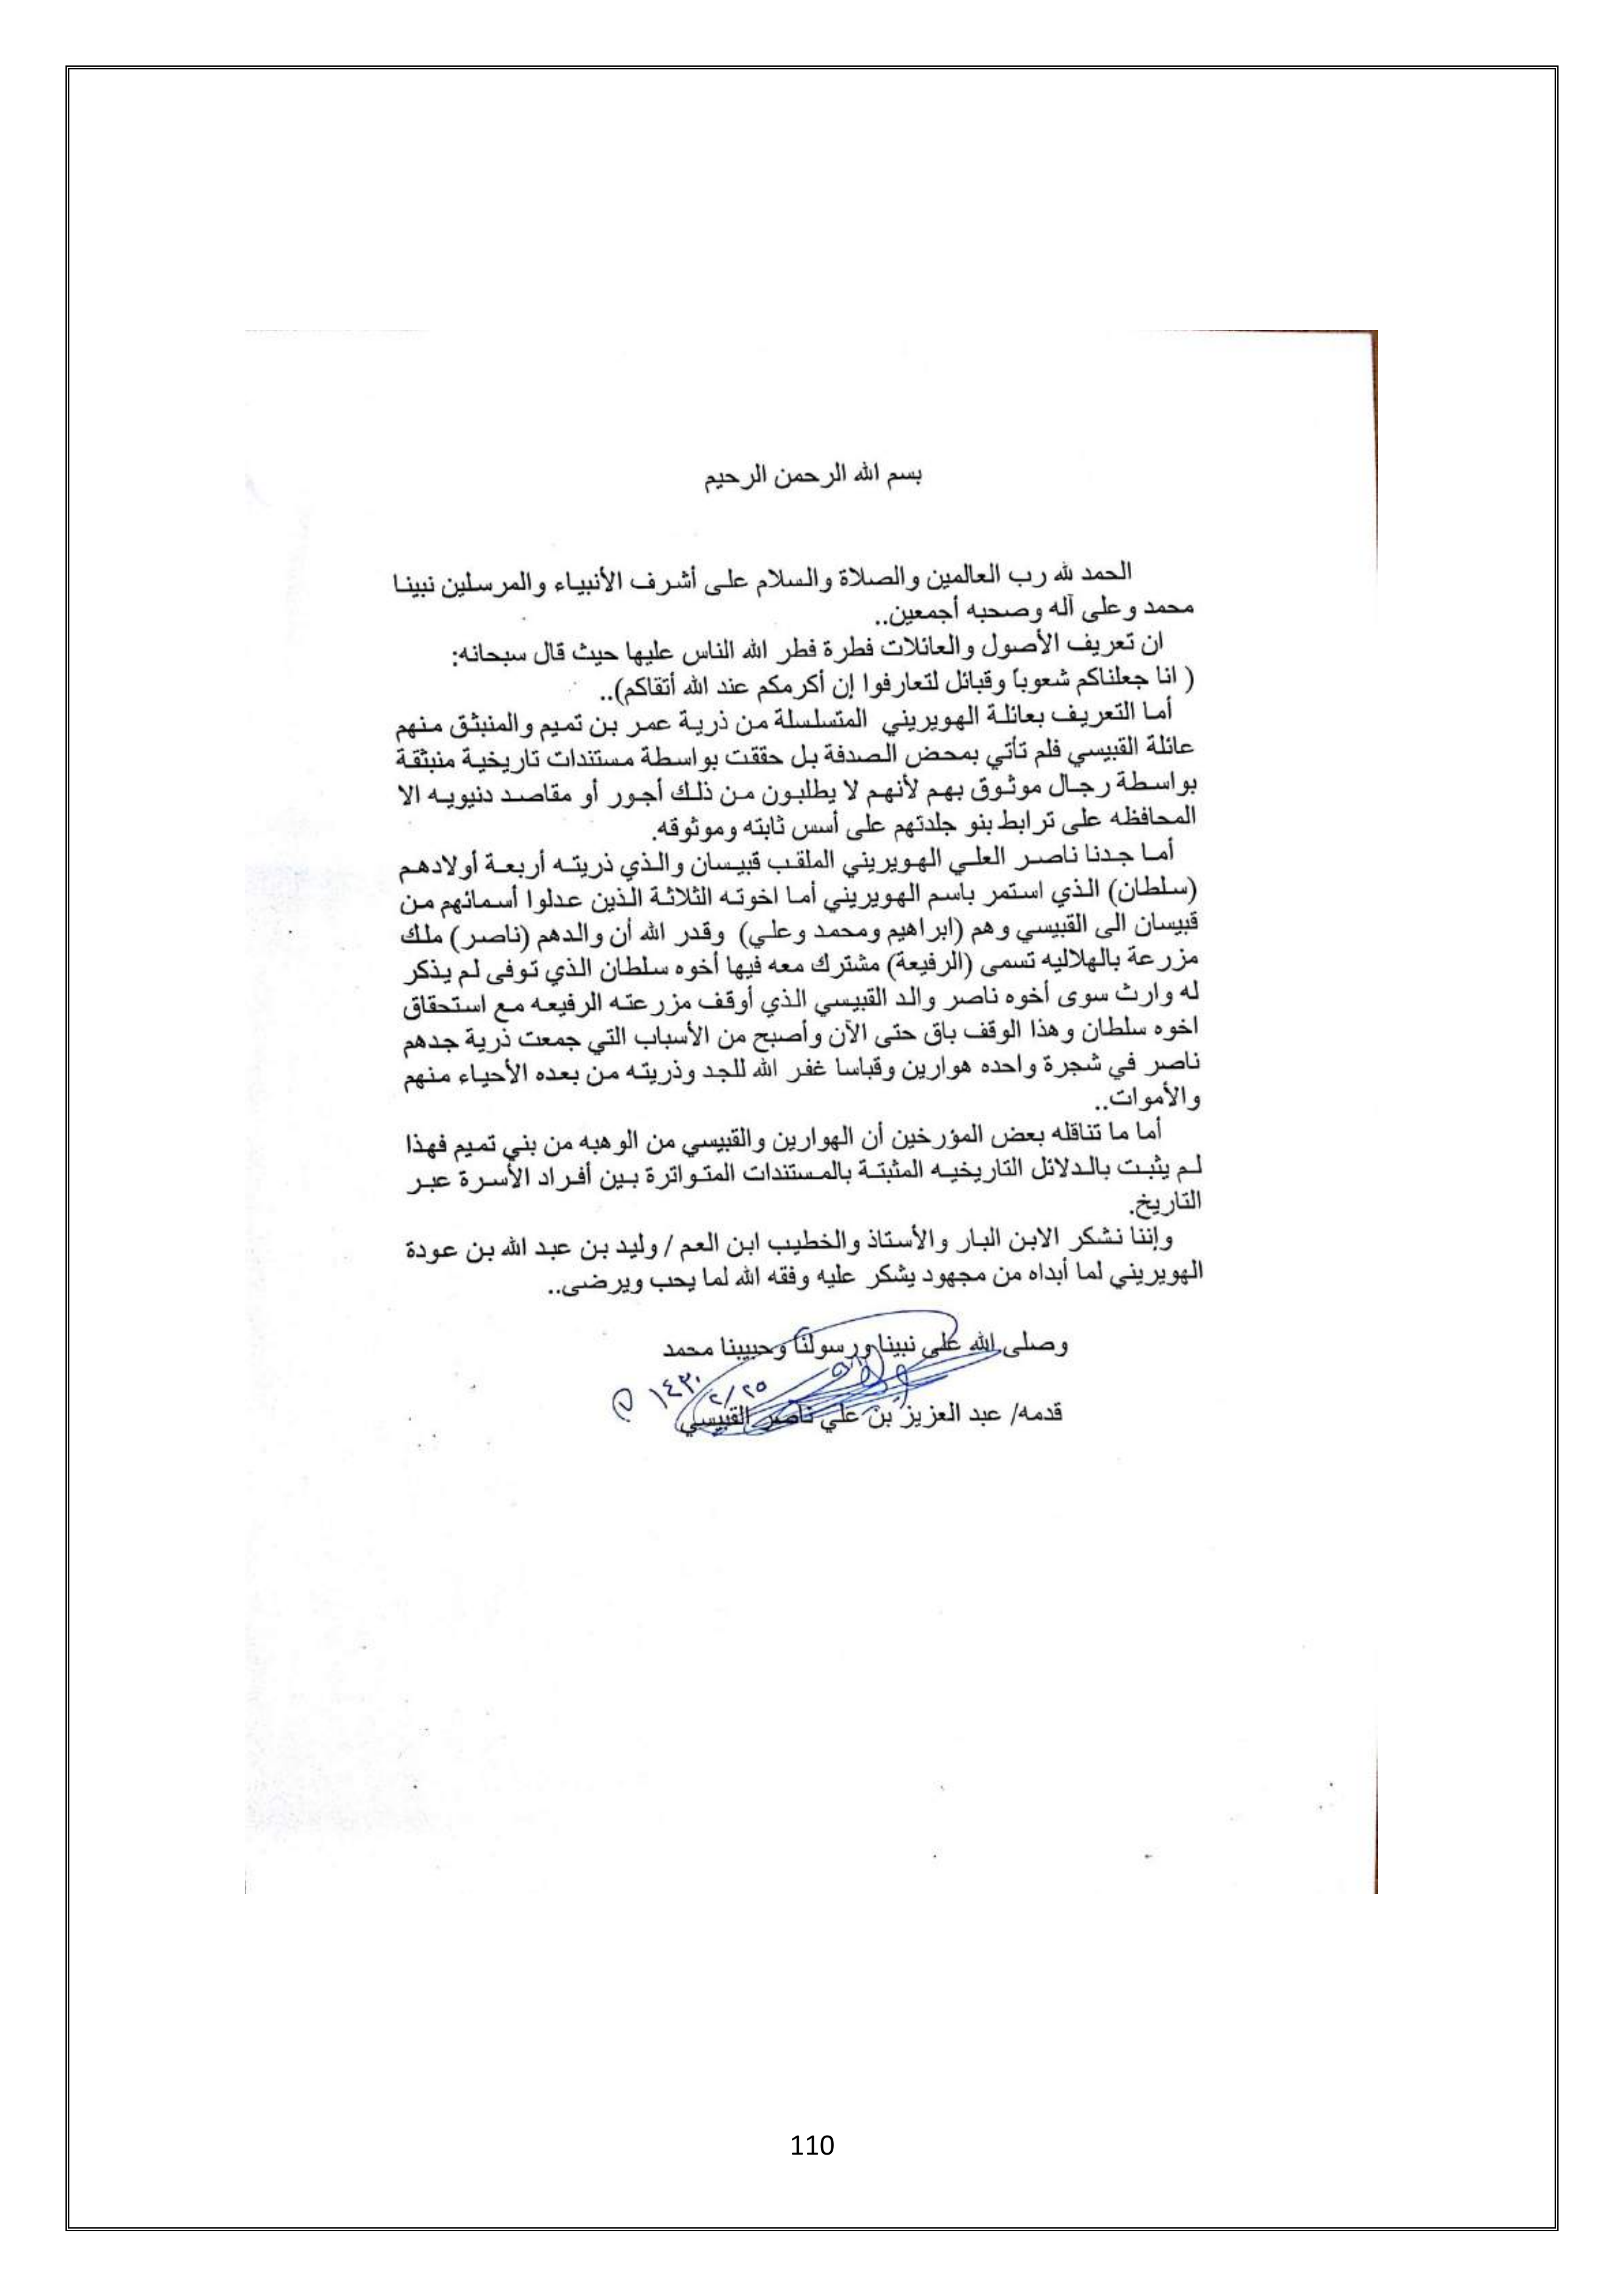 بسم الله الرحمن الرحيم
الحمد لله رب العالمين والصلاة والسلام على أشرف الأنبياء والمرسلين نبينا
محمد وعلى آله وصحبه أجمعين..
ان تعريف الأصول والعائلات فطرة فطر الله الناس عليها حيث قال سبحانه:
( انا جعلناكم شعوباً وقبائل لتعارفوا إن أكرمكم عند الله أتقاكم)..
أما التعريف بعائلة الهويريني المتسلسلة من ذرية عمر بن تميم والمنبثق منهم
عائلة القبيسي فلم تأتي بمحض الصدفة بل حققت بواسطة مستندات تاريخية منبثقة
بواسطة رجال موثوق بهم لأنهم لا يطلبون من ذلك أجور أو مقاصد دنيويه الا
المحافظه على ترابط بنو جلدتهم على أسس ثابته وموثوقه.
أما جدنا ناصر العلي الهويريني الملقب قبيسان والذي ذريته أربعة أولادهم
(سلطان) الذي استمر باسم الهويريني أما اخوته الثلاثة الذين عدلوا أسمائهم من
قبيسان الى القبيسي وهم (ابراهيم ومحمد وعلي) وقدر الله أن والدهم (ناصر) ملك
مزرعة بالهلاليه تسمى (الرفيعة) مشترك معه فيها أخوه سلطان الذي توفى لم يذكر
له وارث سوى أخوه ناصر والد القبيسي الذي أوقف مزرعته الرفيعه مع استحقاق
اخوه سلطان وهذا الوقف باق حتى الآن وأصبح من الأسباب التي جمعت ذرية جدهم
ناصر في شجرة واحده هوارين وقباسا غفر الله للجد وذريته من بعده الأحياء منهم
والأموات..
أما ما تناقله بعض المؤرخين أن الهوارين والقبيسي من الوهبه من بني تميم فهذا
لم يثبت بالدلائل التاريخيه المثبتة بالمستندات المتواترة بين أفراد الأسرة عبر
التاريخ.
وإننا نشكر الابن البار والأستاذ والخطيب ابن العم / وليد بن عبد الله بن عودة
الهويريني لما أبداه من مجهود يشكر عليه وفقه الله لما يحب ويرضى..
وصلى الله على نبينا ورسولنا وحبيبنا محمد
٢/٢٥ ١٤٣٠ هـ
قدمه/ عبد العزيز بن علي ناصر القبيسي
110